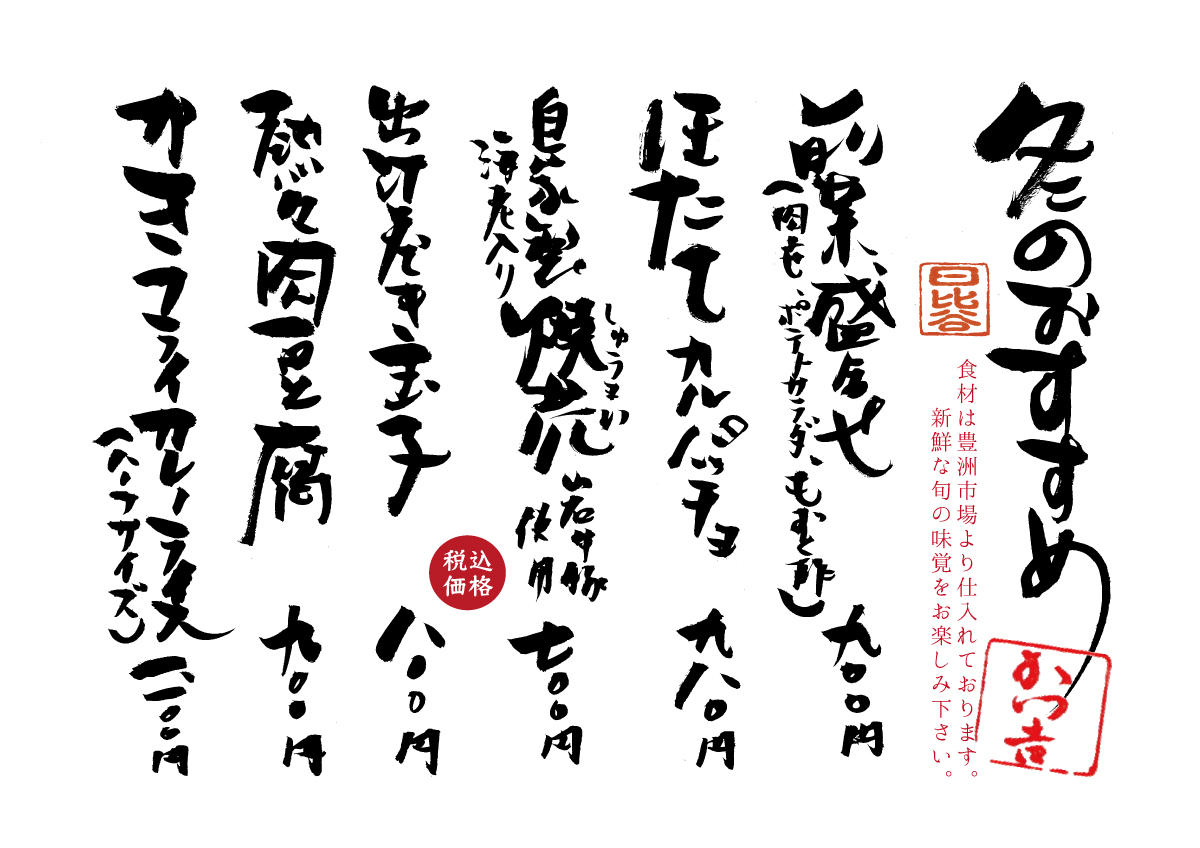 冬のおすすめ
かつ吉
日比谷
食材は豊洲市場より仕入れております。
新鮮な旬の味覚をお楽しみ下さい。
前菜盛合せ 九〇〇円
(肉巻、ポテトサラダ、もずく酢)
ほたてカルパッチョ 九八〇円
自家製焼売 岩中豚使用 七〇〇円
しゅうまい
海老入り
税込価格
出汁巻き玉子 八〇〇円
熱々肉豆腐 九〇〇円
かきフライカレーライス
(ハーフサイズ)